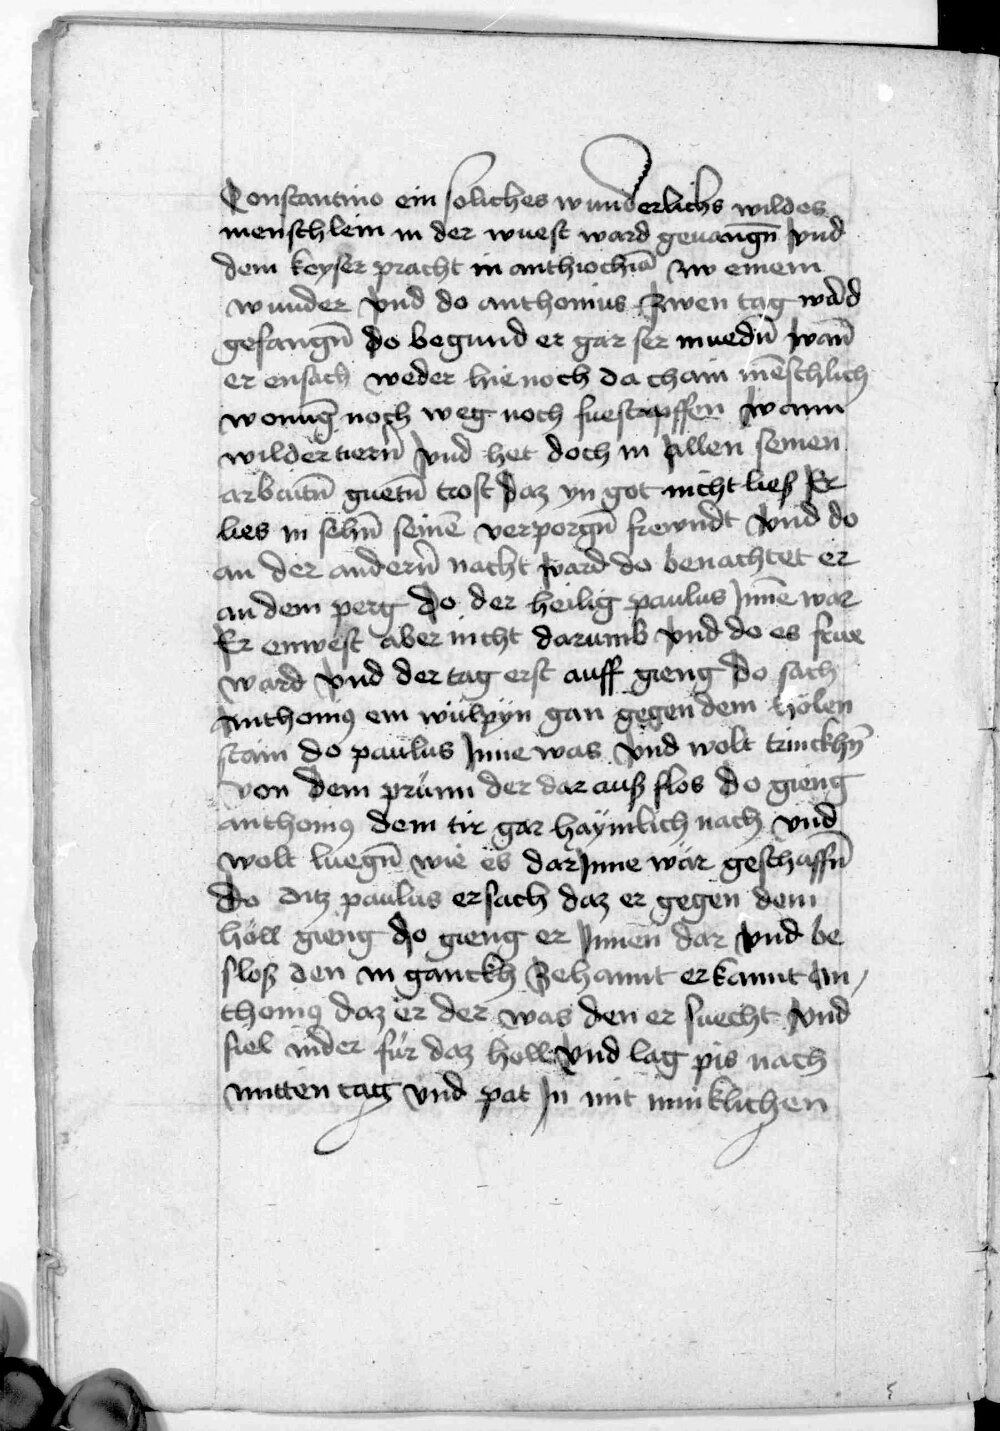 Constantino ein soliches wunderlichs wildes
menschlein in der wuest ward geuangn̄ vnd
dem keyser pracht in anthiochia͞ zw einem
wunder vnd do anthonius zwen tag ward
gefangn̄ do begund er gar ser muedn̄ wan̄
er ensach weder hie noch da chain me͞schlich
wonuḡ noch weg noch fuestapffen wann
wilder tiern̄ vnd het doch in allen seinen
arbaitn̄ guetn̄ trost daz yn got nicht lies Er
lies in sehn̄ seine͞ verporgn̄ frewndt vnd do
an der andern̄ nacht ward do benachtet er
an dem perg do der heilig paulus Jnne͞ war
Er enwest aber nicht darumb vnd do es frue
ward vnd der tag erst auff gieng do sach
Anthoni9 ein wülpyn gan gegen dem hölen
stain do paulus Jnne was vnd wolt trinckhn̄
von dem prünn der dar auß flos do gieng
anthoni9 dem tir gar haymlich nach vnd
wolt luegn̄ wie es dar Jnne wär geschaffn̄
do ditz paulus ersach daz er gegen dem
höll gieng do gieng er Jnnen dar vnd be
sloß den in ganckh Zehannt erkannt An/
thoni9 daz er der was den er suecht vnd
fiel nider für daz holl vnd lag pis nach
mitten tag vnd pat Jn mit inniklichen